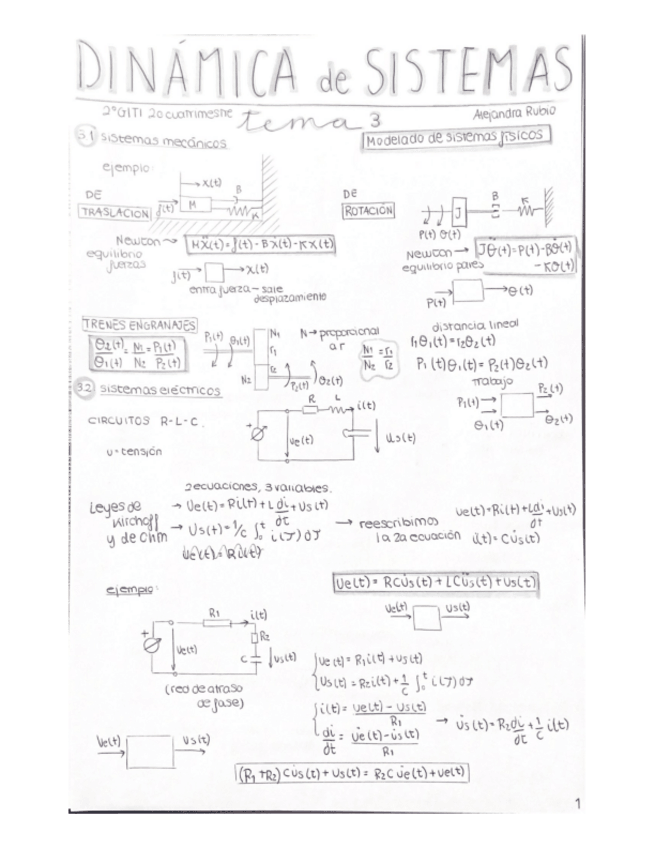 DINÁMICA de SISTEMAS
2ºGITI 2ocuatrimestre
tema 3
Alejandra Rubio
3.1 sistemas mecánicos
Modelado de sistemas físicos
ejemplo:
x(t)
DE
TRASLACIÓN
f(t)
M
B
K
DE
ROTACIÓN
J
B
K
P(t) θ(t)
Newton → MẌ(t) = f(t) - BẊ(t) - KX(t)
equilibrio
fuerzas
f(t) → x(t)
entra fuerza - sale
desplazamiento
Newton → Jθ̈(t) = P(t) - Bθ̇(t)
- Kθ(t)
equilibrio pares
P(t) → θ(t)
TRENES ENGRANAJES
θ2(t)/θ1(t) = N1/N2 = P1(t)/P2(t)
P1(t) θ1(t)
N1
r1
N2
r2
P2(t) θ2(t)
N → proporcional
a r
N1/N2 = r1/r2
distancia lineal
r1θ1(t) = r2θ2(t)
P1(t)θ1(t) = P2(t)θ2(t)
Trabajo
P1(t) → P2(t)
θ1(t) θ2(t)
3.2 sistemas eléctricos
CIRCUITOS R-L-C.
u=tensión
R L i(t)
ue(t)
us(t)
2ecuaciones, 3variables.
Leyes de
Kirchoff
y de Ohm
→ Ue(t) = Ri(t) + L di/dt + Us(t)
→ Us(t) = 1/C ∫₀ᵗ i(τ)dτ
→ reescribimos
la 2a ecuación
ue(t) = Ri(t) + L di/dt + us(t)
i(t) = Cu̇s(t)
Ue(t) = RCu̇s(t) + LCüs(t) + us(t)
ejemplo:
Ue(t) → Us(t)
R1 i(t)
R2
C
ue(t)
us(t)
(red de atraso
de fase)
ue(t) = R1i(t) + us(t)
us(t) = R2i(t) + 1/C ∫₀ᵗ i(τ)dτ
i(t) = ue(t) - us(t) / R1
di/dt = u̇e(t) - u̇s(t) / R1
→ u̇s(t) = R2 di/dt + 1/C i(t)
Ue(t) → Us(t)
(R1+R2)Cu̇s(t) + us(t) = R2Cu̇e(t) + ue(t)
1